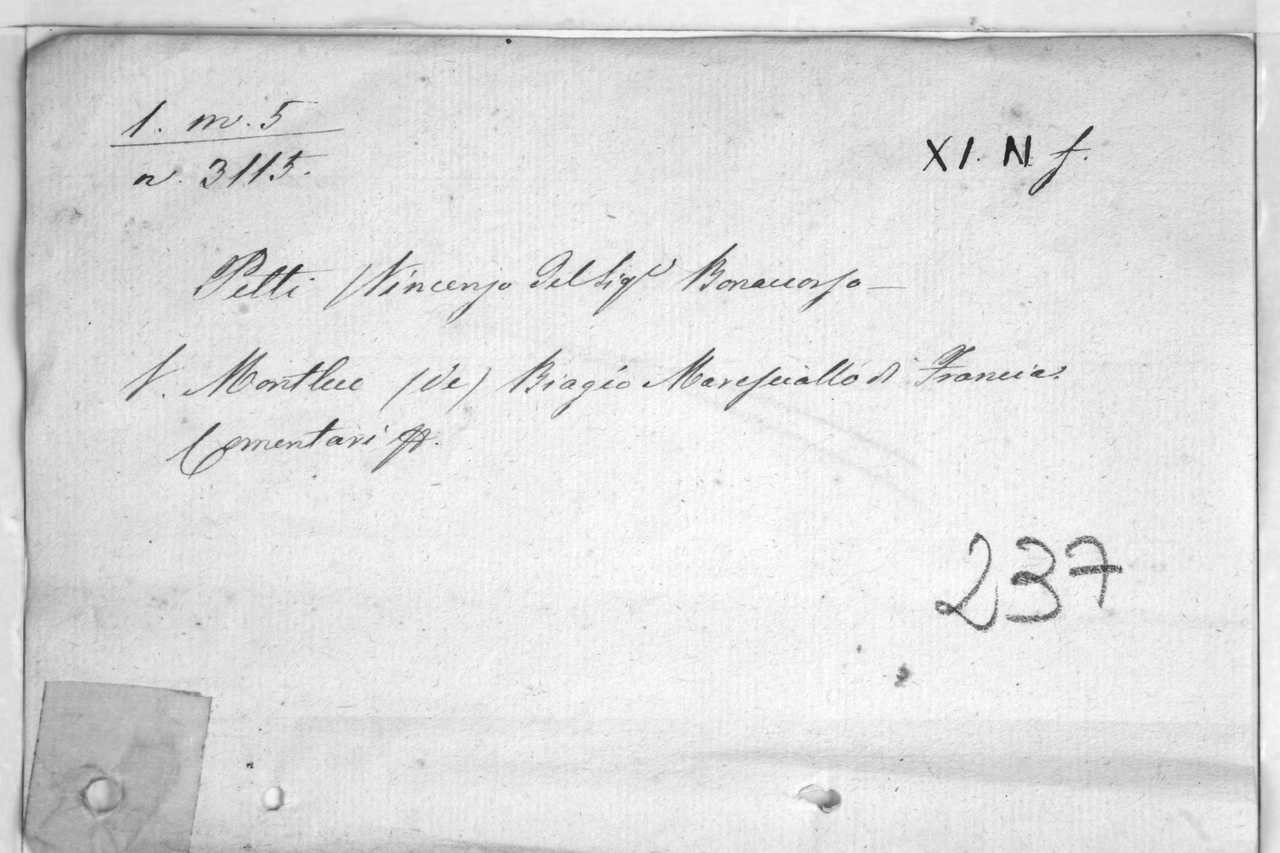 1. m. 5
n. 3115.
XI. N f.
Pitti (Vincenzo del Sigr Bonaccorso —
V. Montluc (de) Biagio Maresciallo di Francia.
Comentari
237